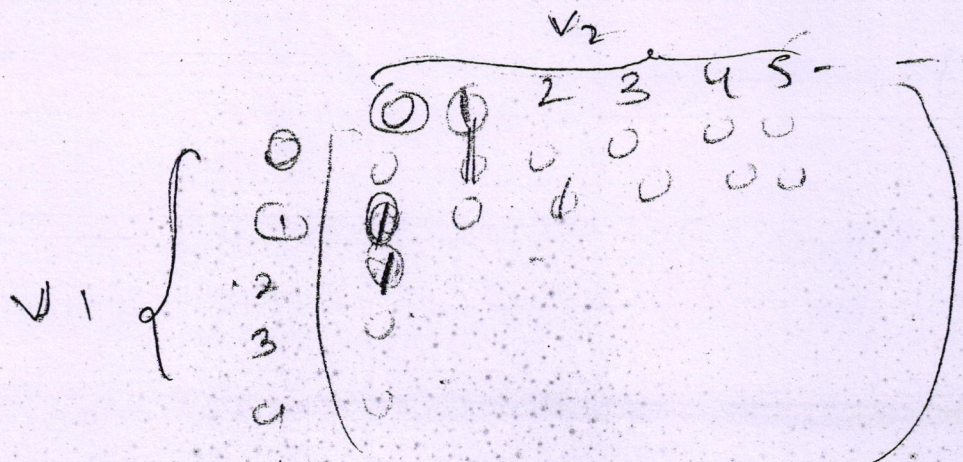 V2
0 1 2 3 4 5 - -
0 0 1 0 0 0 0
1 1 0 1 0 0 0
V1
2 1
3 0
4 0